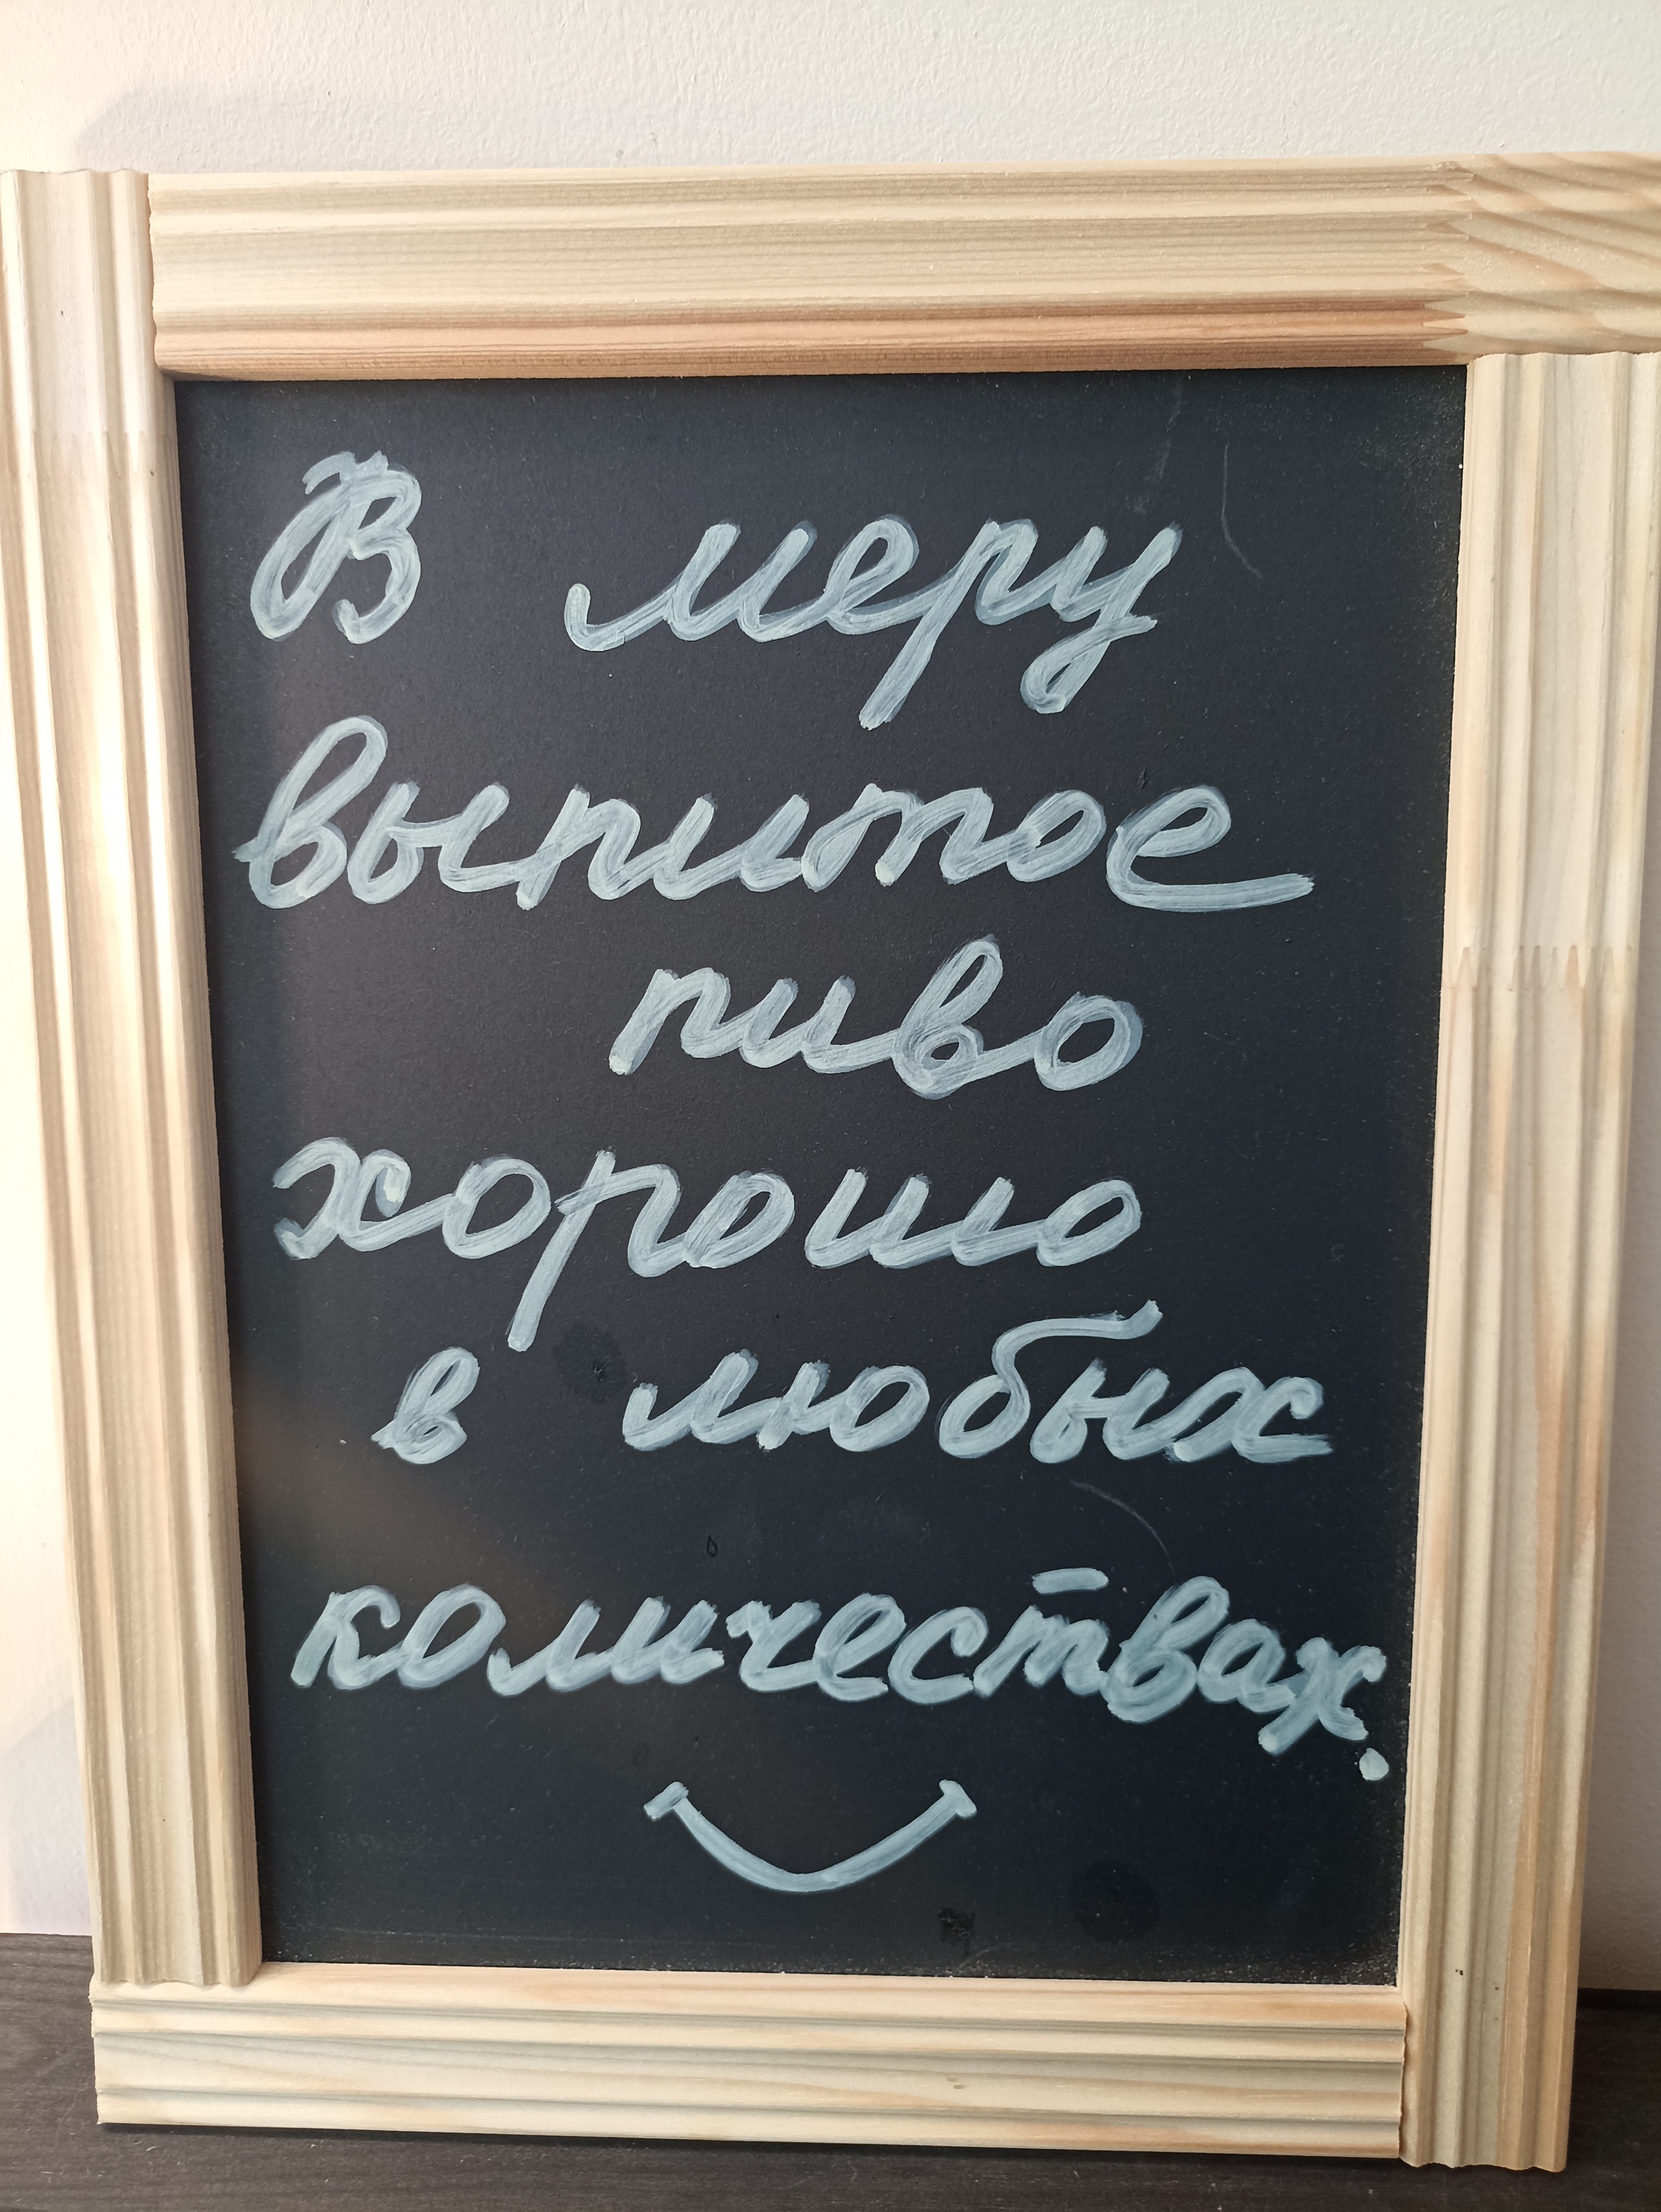 В меру
выпитое
пиво
хорошо
в любых
количествах.